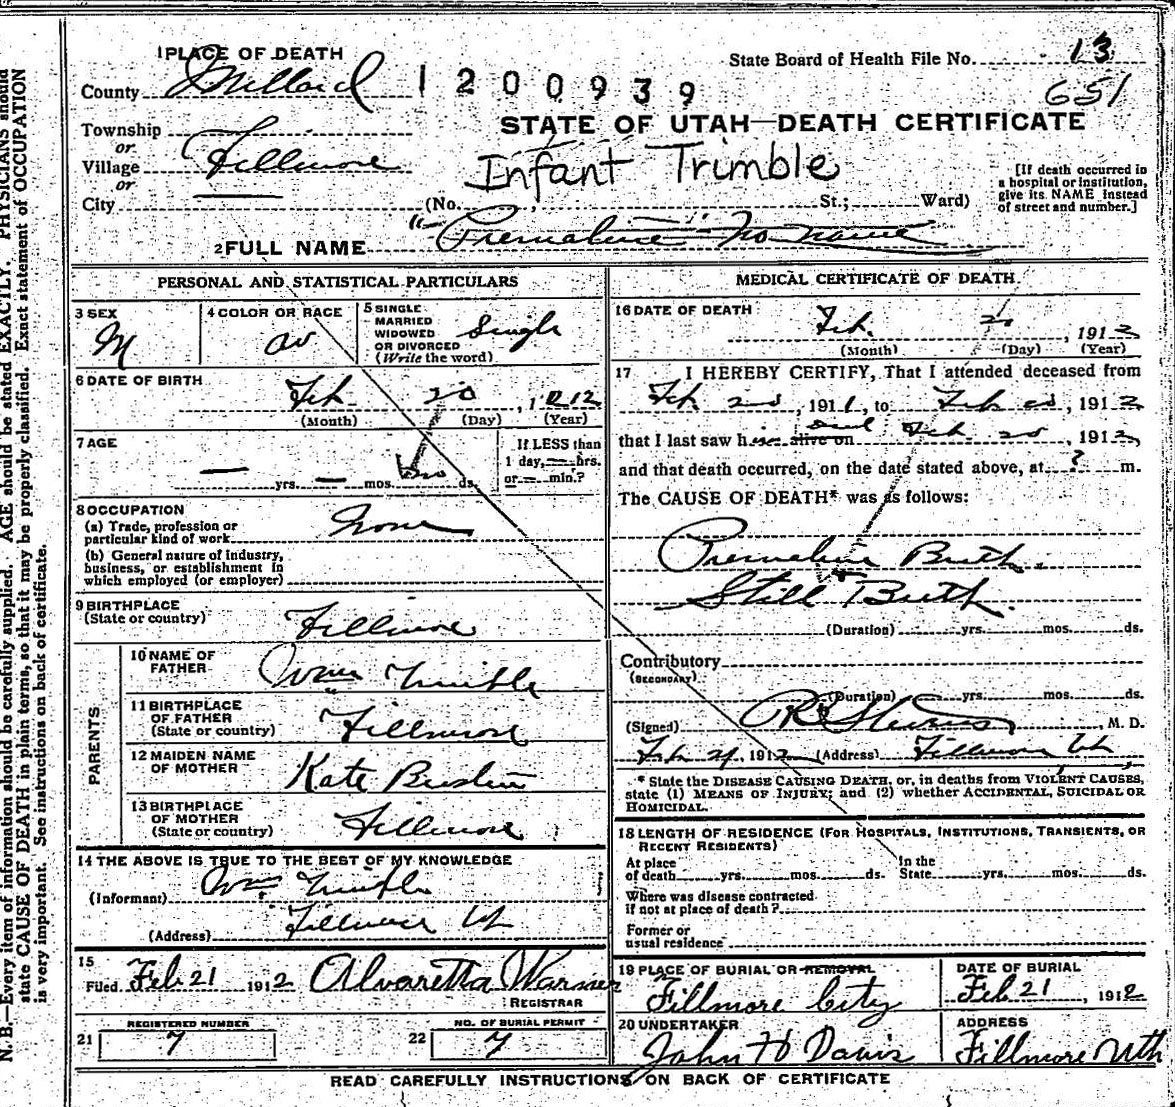 1 PLACE OF DEATH
State Board of Health File No. 13
651
County Millard 1200939
STATE OF UTAH—DEATH CERTIFICATE
Township
or
Village Fillmore
or
City
Infant Trimble
(No. , St.; Ward)
[If death occurred in a hospital or institution, give its NAME instead of street and number.]
2 FULL NAME "Premature - No name"
PERSONAL AND STATISTICAL PARTICULARS
3 SEX M
4 COLOR OR RACE W
5 SINGLE MARRIED WIDOWED OR DIVORCED (Write the word) Single
6 DATE OF BIRTH Feb 20, 1912
(Month) (Day) (Year)
7 AGE
yrs. mos. ds.
If LESS than 1 day, hrs. or min.?
8 OCCUPATION
(a) Trade, profession or particular kind of work None
(b) General nature of industry, business, or establishment in which employed (or employer)
9 BIRTHPLACE (State or country) Fillmore
PARENTS
10 NAME OF FATHER Wm Trimble
11 BIRTHPLACE OF FATHER (State or country) Fillmore
12 MAIDEN NAME OF MOTHER Kate
13 BIRTHPLACE OF MOTHER (State or country) Fillmore
14 THE ABOVE IS TRUE TO THE BEST OF MY KNOWLEDGE
(Informant) Wm Trimble
(Address) Fillmore Ut
15
Filed Feb 21 1912 Alvaretta Warner
REGISTRAR
21 REGISTERED NUMBER 7
22 NO. OF BURIAL PERMIT 7
MEDICAL CERTIFICATE OF DEATH
16 DATE OF DEATH Feb. 20, 1912
(Month) (Day) (Year)
17 I HEREBY CERTIFY, That I attended deceased from
Feb 20, 1911, to Feb 20, 1912
that I last saw him alive on dead Feb 20, 1912,
and that death occurred, on the date stated above, at ? m.
The CAUSE OF DEATH* was as follows:
Premature Birth.
Still Birth.
(Duration) yrs. mos. ds.
Contributory
(SECONDARY)
(Duration) yrs. mos. ds.
(Signed) Stevens, M. D.
Feb 21, 1912 (Address) Fillmore Ut
* State the DISEASE CAUSING DEATH, or, in deaths from VIOLENT CAUSES, state (1) MEANS OF INJURY; and (2) whether ACCIDENTAL, SUICIDAL OR HOMICIDAL.
18 LENGTH OF RESIDENCE (FOR HOSPITALS, INSTITUTIONS, TRANSIENTS, OR RECENT RESIDENTS)
At place of death yrs. mos. ds. In the State yrs. mos. ds.
Where was disease contracted if not at place of death?
Former or usual residence
19 PLACE OF BURIAL OR REMOVAL Fillmore City
DATE OF BURIAL Feb 21, 1912
20 UNDERTAKER John H Davis
ADDRESS Fillmore Utah
READ CAREFULLY INSTRUCTIONS ON BACK OF CERTIFICATE
N. B.—Every item of information should be carefully supplied. AGE should be stated EXACTLY. PHYSICIANS should
state CAUSE OF DEATH in plain terms, so that it may be properly classified. Exact statement of OCCUPATION
is very important. See instructions on back of certificate.